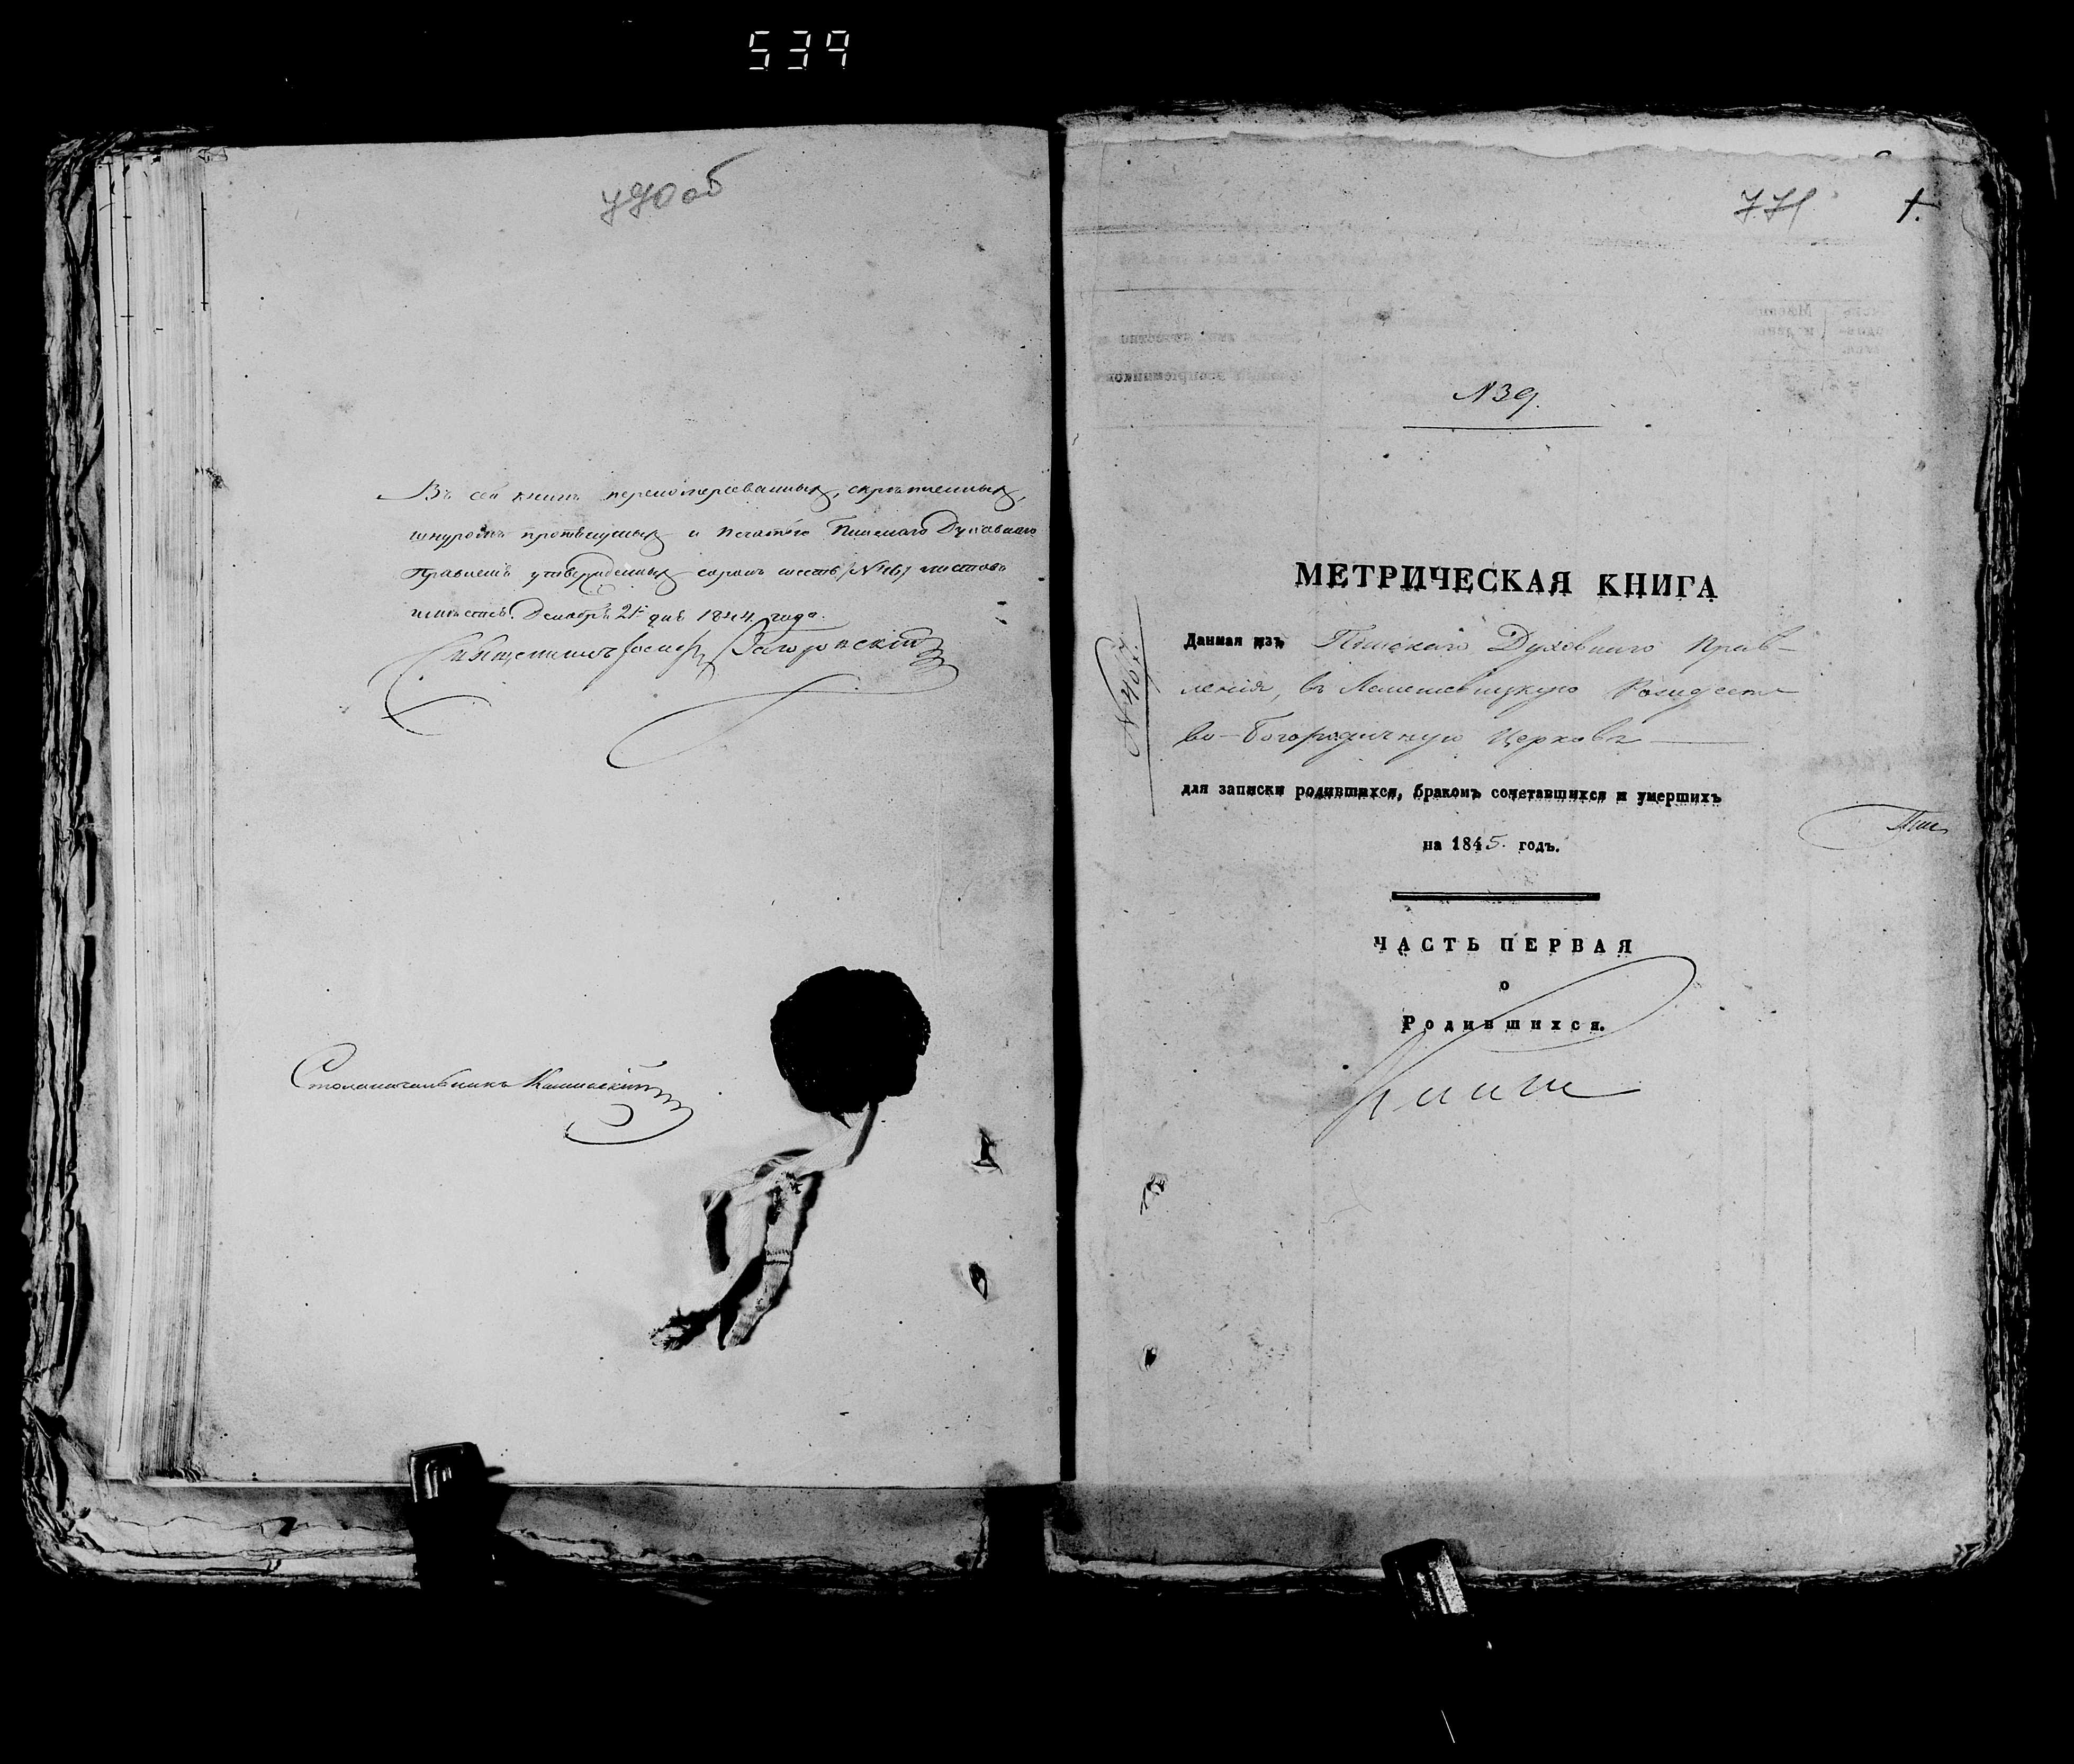 539
770 об
Въ сей книгѣ перенумерованныхъ, скрѣпленныхъ,
шнуромъ и печатью Пинскаго Духовнаго
Правленія утвержденныхъ сорокъ шесть /№ 46/ листовъ
Декабря 21 дня 1844 года.
Загоровскій
Столоначальникъ
771 1.
№ 39.
МЕТРИЧЕСКАЯ КНИГА
Данная изъ Пинскаго Духовнаго Прав-
ленія, въ Лемешевицкую Рождест
во-Богородичную Церковь
для записки родившихся, бракомъ сочетавшихся и умершихъ
на 1845. годъ.
Пин
ЧАСТЬ ПЕРВАЯ
о
Родившихся.